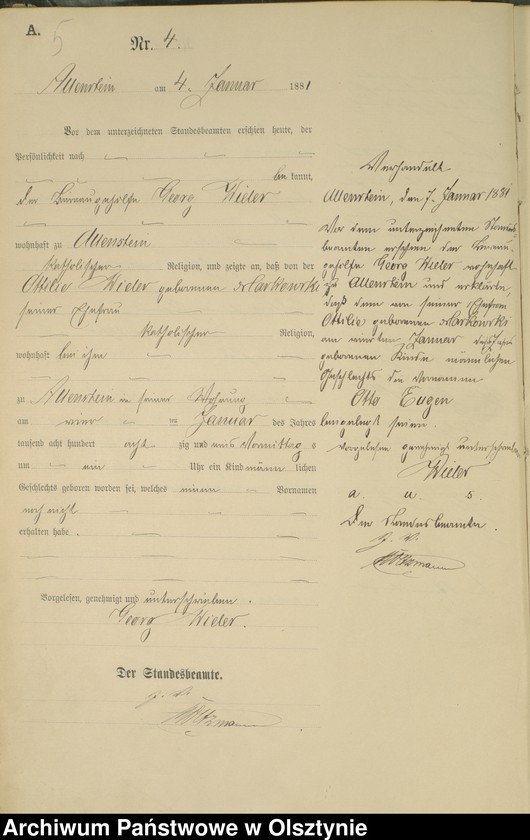 A.
5
Nr. 4.
Allenstein am 4. Januar 1881
Vor dem unterzeichneten Standesbeamten erschien heute, der
Persönlichkeit nach
bekannt,
der Bureaugehülfe Georg Wieler
wohnhaft zu Allenstein
katholischer Religion, und zeigte an, daß von der
Ottilie Wieler geborenen Markowski
seiner Ehefrau
katholischer Religion,
wohnhaft bei ihm
zu Allenstein in seiner Wohnung
am vier ten Januar des Jahres
tausend acht hundert acht zig und eins Vormittag s
um ein Uhr ein Kind männ lichen
Geschlechts geboren worden sei, welches einen Vornamen
noch nicht
erhalten habe.
Vorgelesen, genehmigt und unterschrieben.
Georg Wieler.
Der Standesbeamte.
Verhandelt
Allenstein, den 7. Januar 1881
Vor dem unterzeichneten Standes
beamten erschien der Bureau-
gehülfe Georg Wieler wohnhaft
zu Allenstein und erklärte,
daß dem von seiner Ehefrau
Ottilie geborenen Markowski
am vierten Januar
geborenen Kinde männlichen
Geschlechts die Vornamen
Otto Eugen
beigelegt seien.
Vorgelesen genehmigt unterschrieben
Wieler
a. u. s.
Der Standesbeamte.
Archiwum Państwowe w Olsztynie